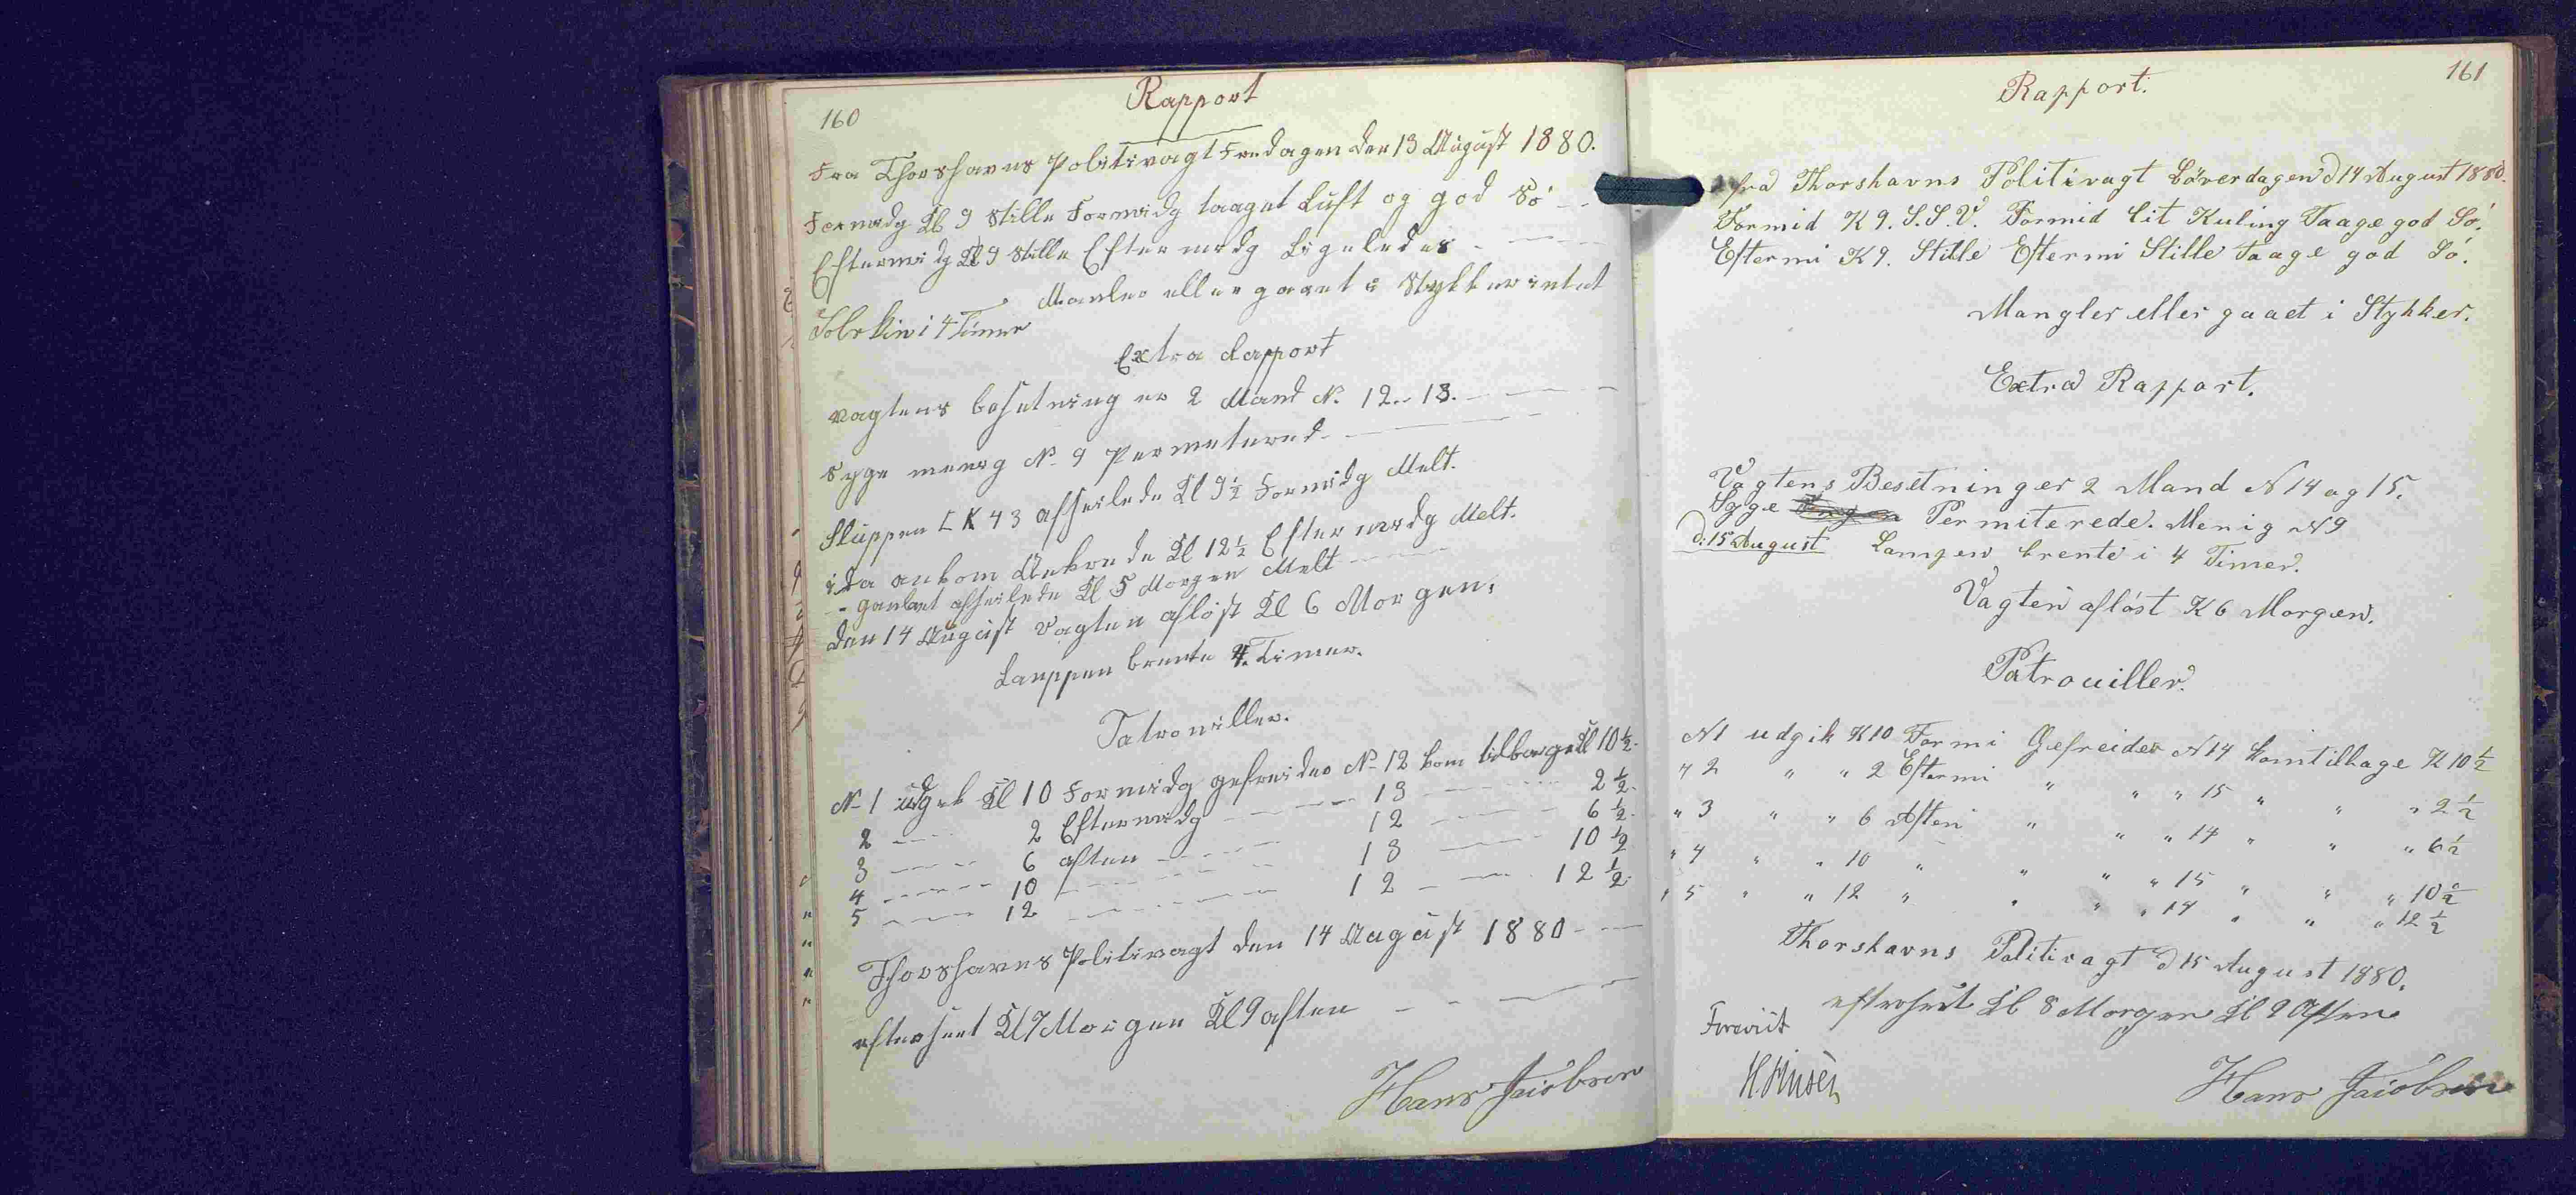 160
Rapport
Fra Thorshavns Politivagt Fredagen den 13 August 1880.
Formidg Kl 9 Stille Formidg taaget Luft og god Sö
Eftermidg Kl 9 Stille Eftermidg Ligeledes
Manler eller gaaet i Stykker intet
Solskin i 4 Timer
Extra Rapport
vagtens besetning er 2 Mand N. 12 - 13.
Syge menig N. 9 Permetered
Sluppen L K 43 afseilede Kl 9½ Formidg Melt.
ida ankom Ankrede Kl 12½ Eftermidg Melt.
afseilede Kl 5 Morgen Melt
den 14 August vagten aflöst Kl 6 Morgen.
Lanppen brente 4. Timer.
Patroviller.
N. 1 udgik Kl 10 Formidg gefreider N. 12 kom tilbage Kl 10½
2 2 Eftermidg 13 2½
3 6 aften 12 6½
4 10 13 10½
5 12 12 12½
Thorshavns Politivagt den 14 August 1880
efterseet Kl 7 Morgen Kl 9 aften
Hans Jacobsen
161
Rapport.
fra Thorshavns Politivagt Löverdagen d 14 August 1880.
Formid K 9. S.S.V. Formid lit Kuling Taage god Sö.
Eftermi K 9. Stille Eftermi Stille Taage god Sö.
Mangler eller gaaet i Stykker.
Extra Rapport.
Vagtens Besetninger 2 Mand N 14 og 15.
Syge Permiterede. Menig N 9
d: 15 August Lampen brente i 4 Timer.
Vagten aflöst K 6 Morgen.
Patrouiller.
N 1 udgik K 10 Formi Gefreider N 14 kom tilbage K 10½
" 2 " " 2 Eftermi " " " 15 " " " 2½
" 3 " " 6 Aften " " " 14 " " " 6½
" 4 " " 10 " " " " 15 " " " 10½
" 5 " " 12 " " " " 14 " " " 12½
Thorshavns Politivagt d 15 August 1880.
efterseet Kl 8 Morgen Kl 9 Aften
Foreviist
Hans Jacobsen